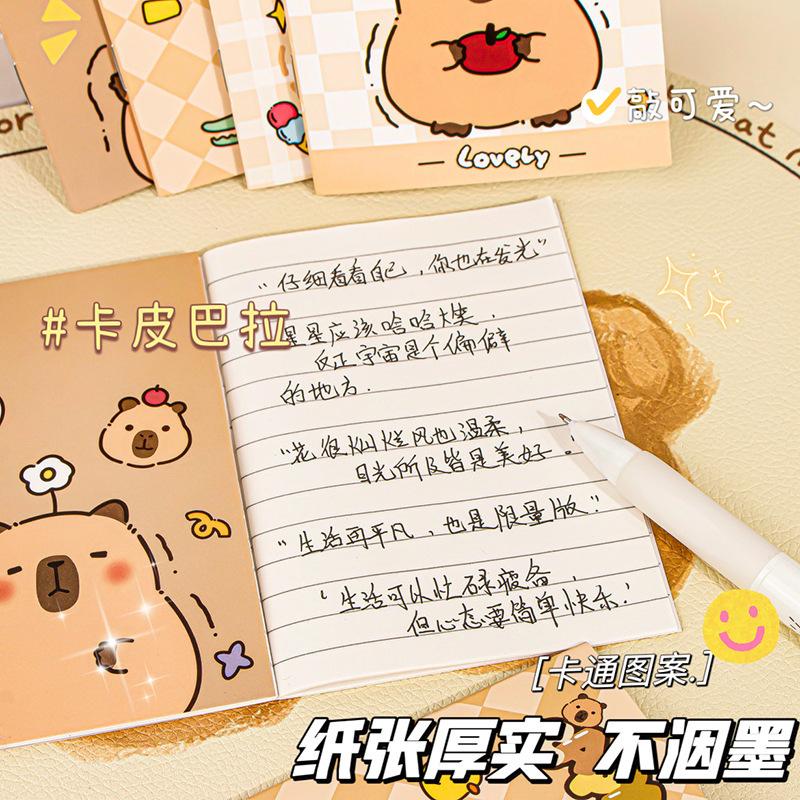 敲可爱~
Lovely
"仔细看看自己，你也在发光"
#卡皮巴拉
星星应该哈哈大笑，
反正宇宙是个偏僻
的地方.
"花很灿烂风也温柔，
目光所及皆是美好!
"生活再平凡，也是限量版!"
'生活可以忙碌疲备，
但心态要简单快乐!
[卡通图案.]
纸张厚实 不洇墨